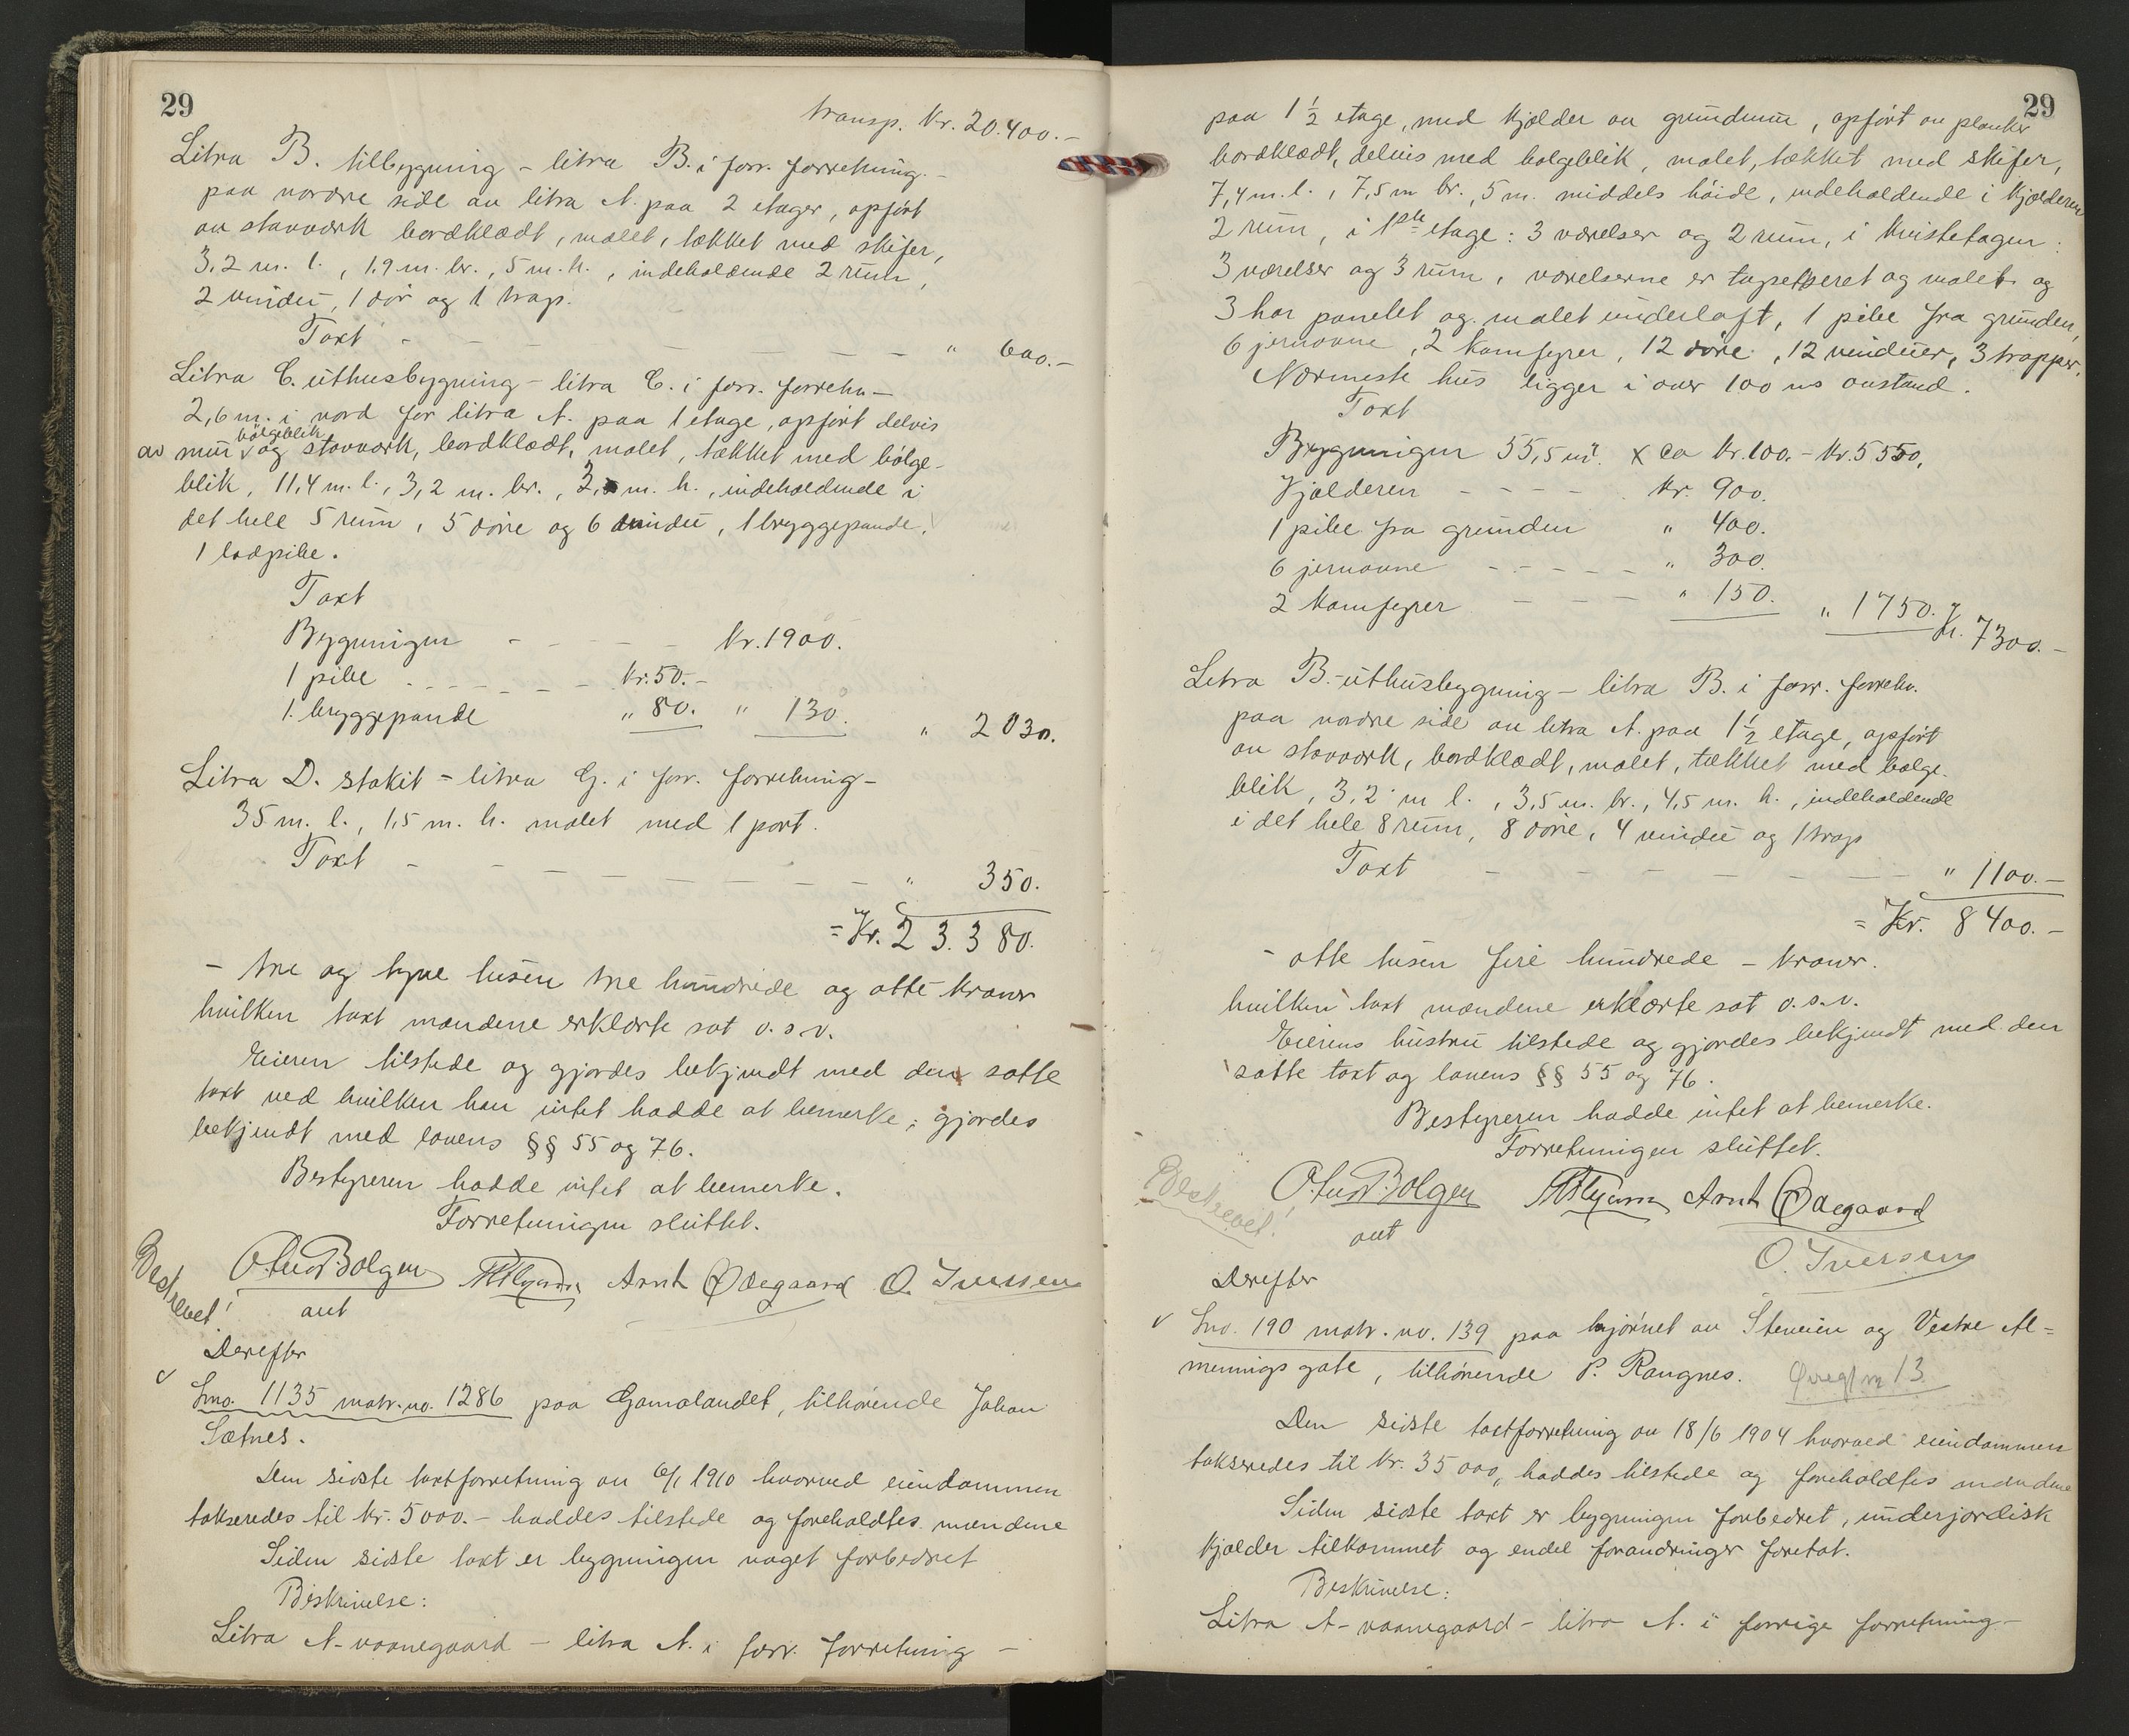 29
transp. Kr. 20.400.-
Litra B. tilbygning - litra B. i forr. forretning. -
paa nordre side av litra A. paa 2 etager, opført
av stavverk bordklædt, malet, tækket med skifer,
3,2 m. l., 1,9 m. br., 5 m. h., indeholdende 2 rum,
2 vinduer, 1 dør og 1 trap.
Taxt - - - - - - - " 600.-
Litra C. uthusbygning - litra C. i forr. forretn. -
2,6 m. i nord for litra A. paa 1 etage, opført delvis
av mur bølgeblik og stavverk, bordklædt, malet, tækket med bølge-
blik, 11,4 m. l., 3,2 m. br., m. h., indeholdende i
det hele 5 rum, 5 døre og 6 vinduer, 1 bryggepande,
1 lodpibe.
Taxt
Bygningen - - - - Kr. 1900.
1 pibe - - - - - - Kr. 50.-
1. bryggepande " 80. " 130. " 2030.
Litra D. stakit - litra G. i forr. forretning -
35 m. l., 1,5 m. h. malet med 1 port.
Taxt - - - - - - - - " 350.
= Kr. 23.380.
- tre og tyve tusen tre hundrede og otti kroner
hvilken taxt mændene erklærte sat o.s.v.
Eieren tilstede og gjordes bekjendt med den satte
taxt ved hvilken han intet hadde at bemerke; gjordes
bekjendt med lovens §§ 55 og 76.
Bestyreren hadde intet at bemerke.
Forretningen sluttet.
Beskrevet! O. Bolgen Arnt Ødegaard O. Iversen
aut
Derefter
Lno. 1135 matr. no. 1286 paa Gomalandet, tilhørende Johan
Sætnes.
Den sidste taxtforretning av 6/1 1910 hvorved eiendommen
takseredes til kr. 5000.- haddes tilstede og foreholdtes mændene
Siden sidste taxt er bygningen noget forbedret
Beskrivelse:
Litra A - vaanegaard - litra A. i forr. forretning -
29
paa 1 1/2 etage, med kjelder av grundmur, opført av planker
bordklædt, delvis med bølgeblik, malet, tækket med skifer,
7,4 m. l., 7,5 m br., 5 m. middels høide, indeholdende i kjelderen
2 rum, i 1ste etage: 3 værelser og 2 rum, i kvistetagen:
3 værelser og 3 rum, værelserne er tapetseret og malet og
3 har panelet og malet underloft, 1 pibe fra grunden,
6 jernovne, 2 komfyrer, 12 døre, 12 vinduer, 3 trapper.
Nærmeste hus ligger i over 100 ms avstand.
Taxt
Bygningen 55,5 m². x ca kr. 100.- Kr. 5550,
Kjelderen - - - - Kr. 900.
1 pibe fra grunden " 400.
6 jernovne - - - - - " 300.
2 komfyrer - - - - " 150. " 1750. Kr. 7300.-
Litra B. - uthusbygning - litra B. i forr. forretn.
paa nordre side av litra A. paa 1 1/2 etage, opført
av stavverk, bordklædt, malet, tækket med bølge-
blik, 3,2 m l., 3,5 m. br., 4,5 m. h., indeholdende
i det hele 8 rum, 8 døre, 4 vinduer og 1 trap
Taxt - - - - - - - " 1100.-
= Kr. 8400.-
- otte tusen fire hundrede - kroner.
hvilken taxt mændene erklærte sat o.s.v.
Eierens hustru tilstede og gjordes bekjendt med den
satte taxt og lovens §§ 55 og 76.
Bestyreren hadde intet at bemerke.
Forretningen sluttet.
Beskrevet! O. Bolgen Arnt Ødegaard
aut
O. Iversen
Derefter
Lno. 190 matr. no. 139 paa hjørnet av Stenveien og Vestre Al=
mennings gate, tilhørende P. Rangnes. 13
Den sidste taxtforretning av 18/6 1904 hvorved eiendommen
takseredes til kr. 35000,, haddes tilstede og foreholdtes mændene
Siden sidste taxt er bygningen forbedret, underjordisk
kjelder tilkommet og endel forandringer foretat.
Beskrivelse:
Litra A - vaanegaard - litra A. i forrige forretning -